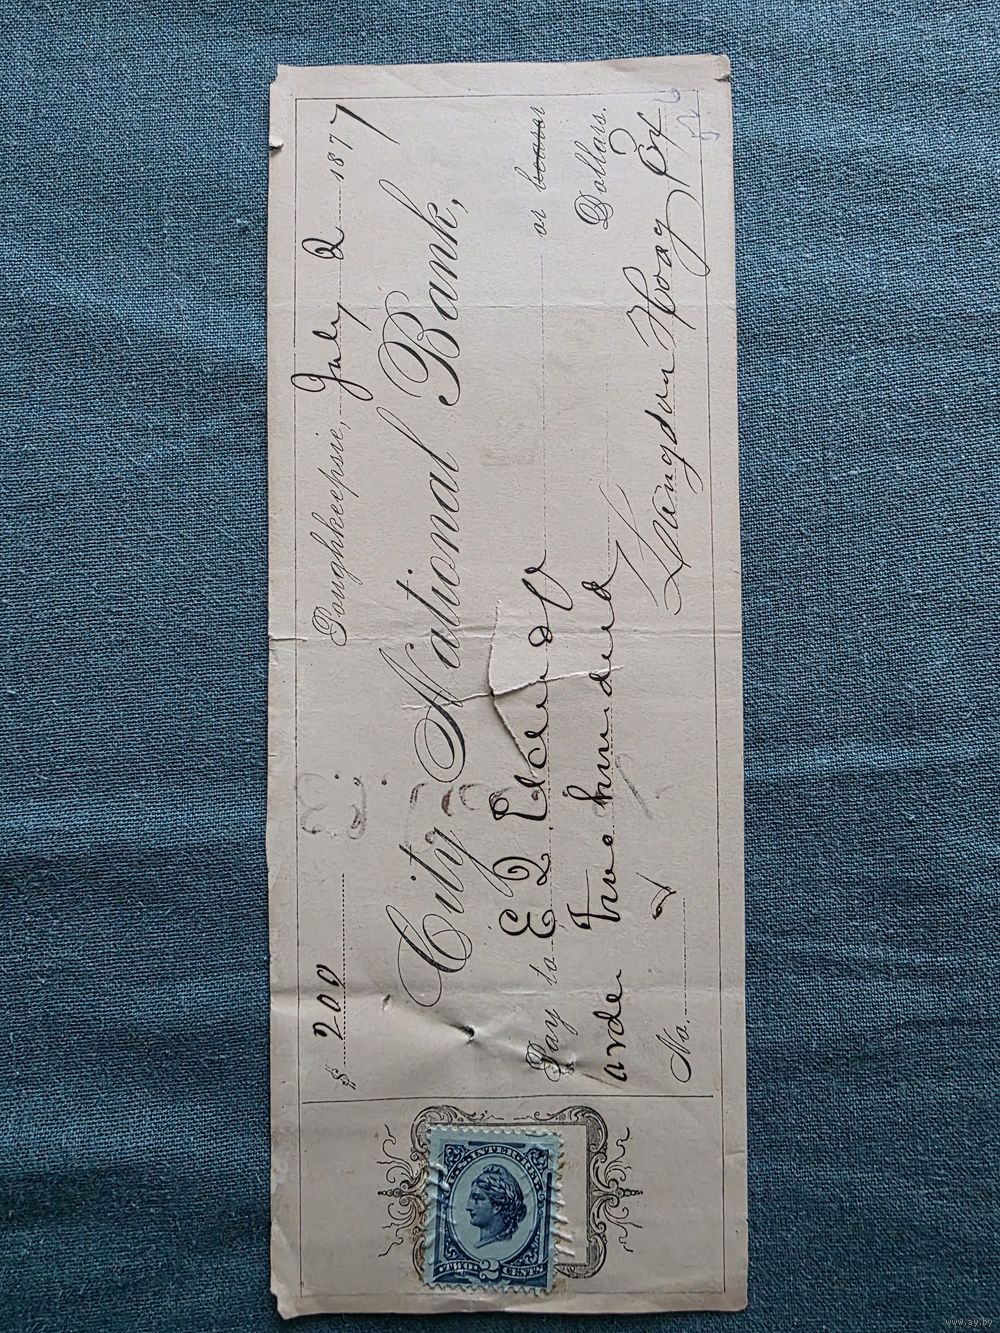 $ 200
Poughkeepsie, July 2 1877
City National Bank,
Pay to E Q Eldridge or bearer
order Two hundred Dollars.
No. Langdon Hoag
U.S. INTER. REV.
TWO 2 CENTS
www.ay.by